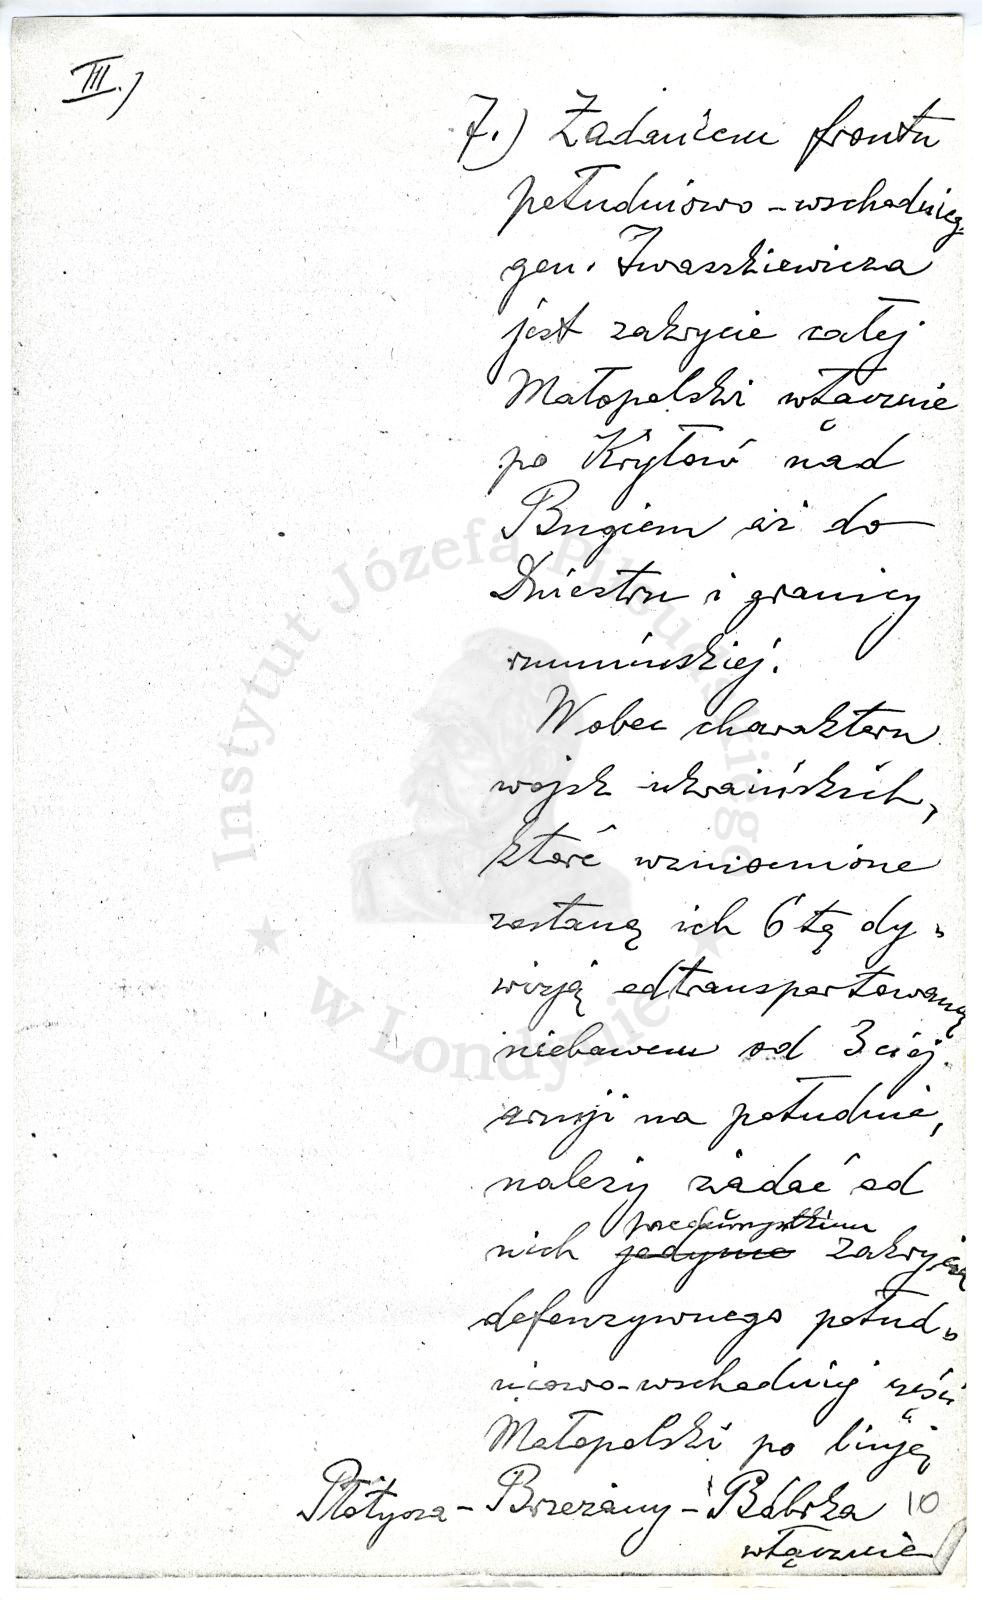 III.)
7.) Zadaniem frontu
południowo-wschodnieg.
gen. Iwaszkiewicza
jest zakrycie całej
Małopolski włącznie
po Kryłów nad
Bugiem aż do
Dniestru i granicy
rumuńskiej.
Wobec charakteru
wojsk ukraińskich,
które wzmocnione
zostaną ich 6tą dy-
wizją odtransportowaną
niebawem od 3ciej
armji na południe,
należy żądać od
przedewszystkiem
nich jedynie zakrycia
defenzywnego połud-
niowo-wschodniej części
Małopolski po linję
Płotycza - Brzeżany - Bóbrka 10
włącznie
Instytut Józefa Piłsudskiego
w Londynie